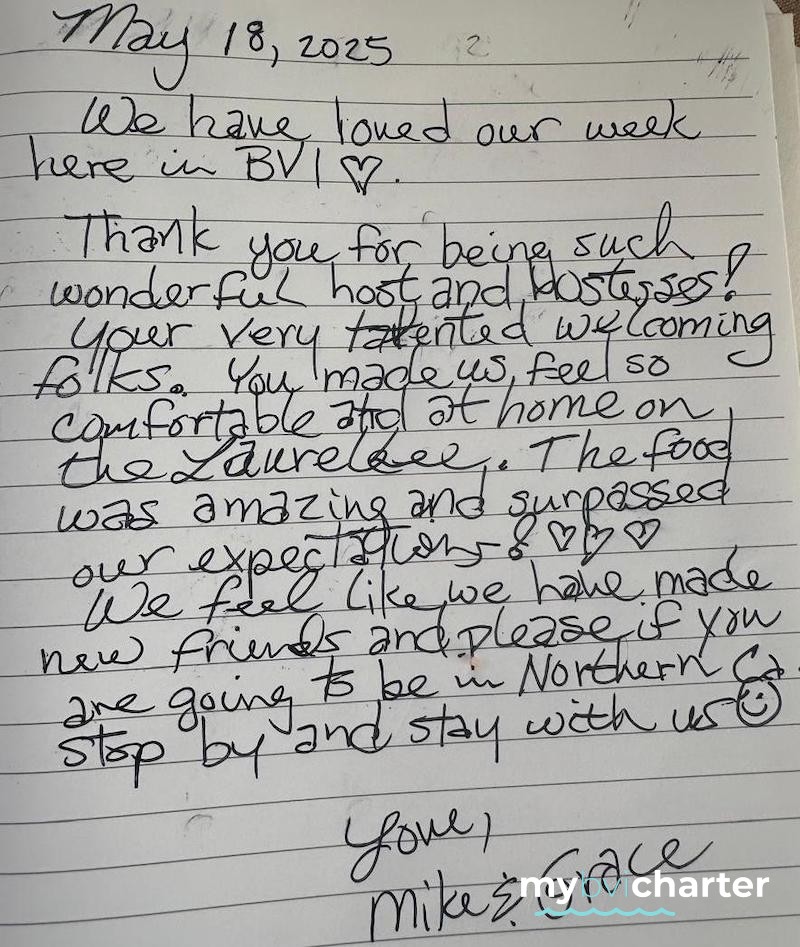 May 18, 2025
We have loved our week
here in BVI ♡.
Thank you for being such
wonderful host and hostesses!
Your very talented welcoming
folks. You made us feel so
comfortable and at home on
the Laurelee. The food
was amazing and surpassed
our expectations! ♡♡♡
We feel like we have made
new friends and please if you
are going to be in Northern Ca.
stop by and stay with us ☺
Mike & Grace
mybvicharter